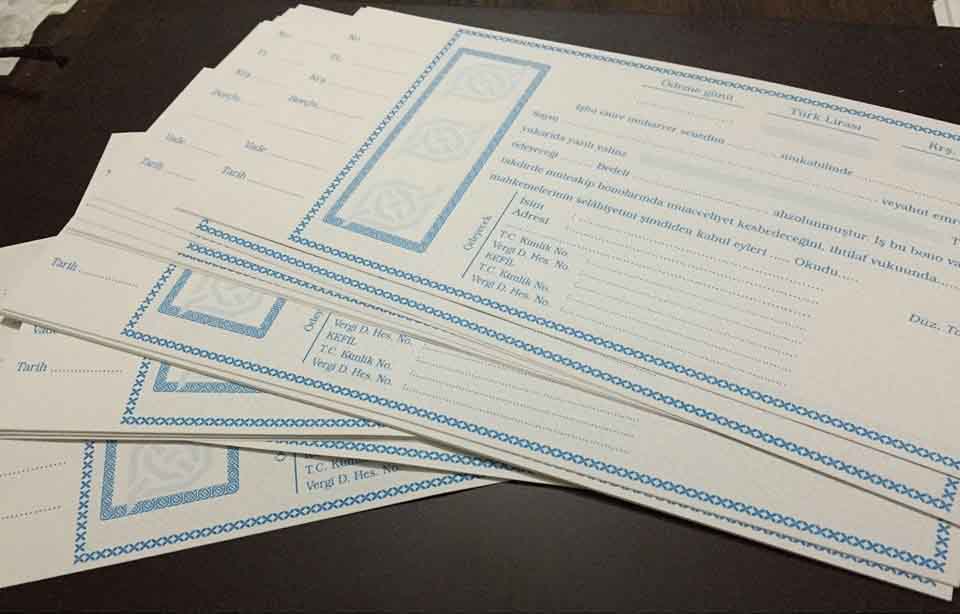 No.
TL.
Krş.
Borçlu
Vade
Tarih
No.
TL.
Krş.
Borçlu
Vade
Tarih
Ödeme günü
Türk Lirası
Krş.
İşbu emre muharrer senedim mukabilinde
Sayın veyahut emr
yukarıda yazılı yalnız
ödeyeceği Bedeli ahzolunmuştur. İş bu bono va
takdirde müteakip bonolarında muacceliyet kesbedeceğini, ihtilaf vukuunda,
mahkemelerinin selâhiyetini şimdiden kabul eyleri Okudu
Ödeyecek
İsim
Adresi
T.C. Kimlik No.
Vergi D. Hes. No.
KEFİL
T.C. Kimlik No.
Vergi D. Hes. No.
Düz. Ta
Tarih
Ödey
Vergi D. Hes. No.
KEFİL
T.C. Kimlik No.
Vergi D. Hes. No.
Vade
Tarih
T.C. Kimlik No.
Vergi D. Hes. No.